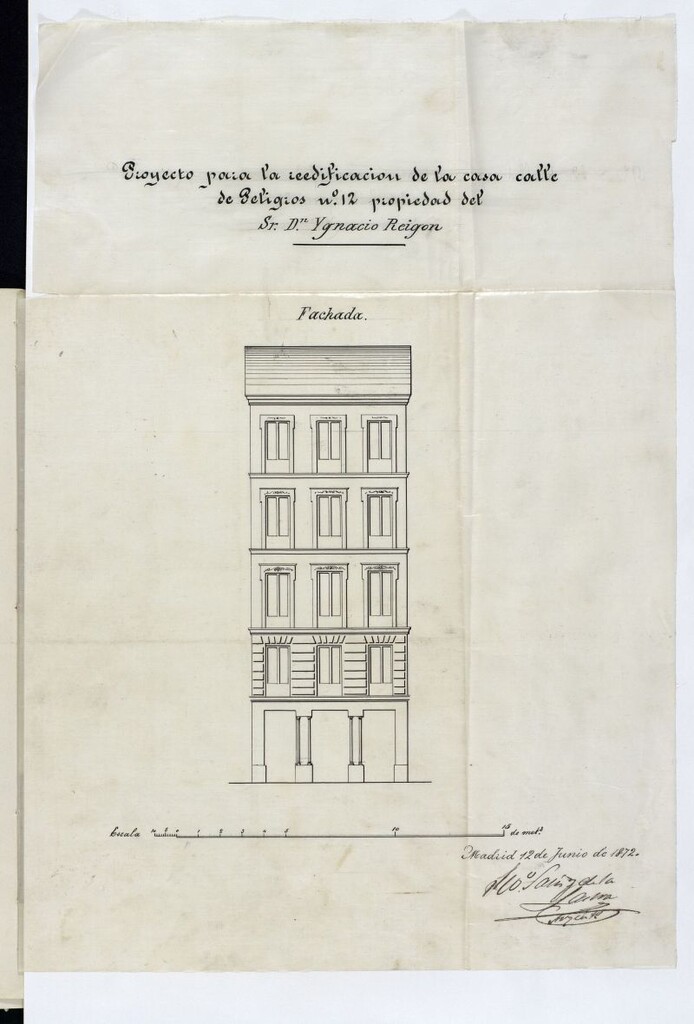 Proyecto para la reedificacion de la casa calle
de Peligros nº. 12 propiedad del
Sr. Dn. Ygnacio Reigon
Fachada.
Escala 10 5 0 1 2 3 4 5 10 15 de metˢ
Madrid 12 de Junio de 1872.
Saiñz de la
Lastra